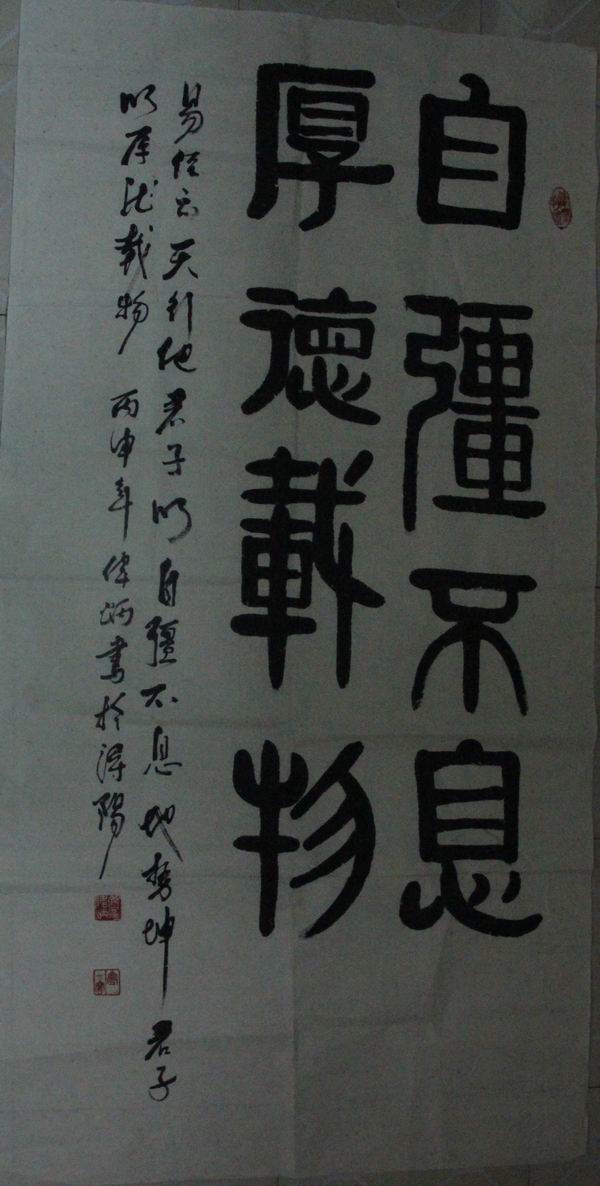 自彊不息
厚德載物
易經云天行健君子以自彊不息地勢坤君子
以厚德載物 丙申年偉炳書於潯陽